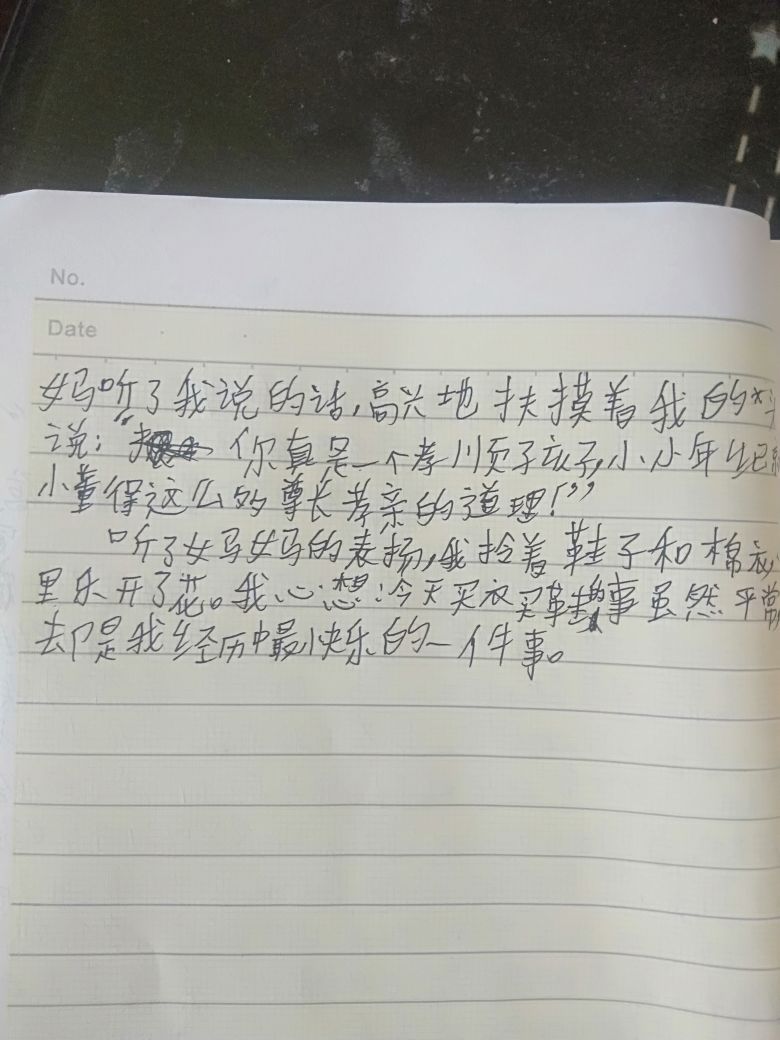 No.
Date
妈听了我说的话,高兴地扶摸着我的
说:“你真是一个孝顺子孩子,小小年纪
小董得这么多的尊长孝亲的道理!”
听了妈妈的表扬,我拎着鞋子和棉衣
里乐开了花。我心想:今天买衣买鞋的事虽然平常
却是我经历中最快乐的一件事。